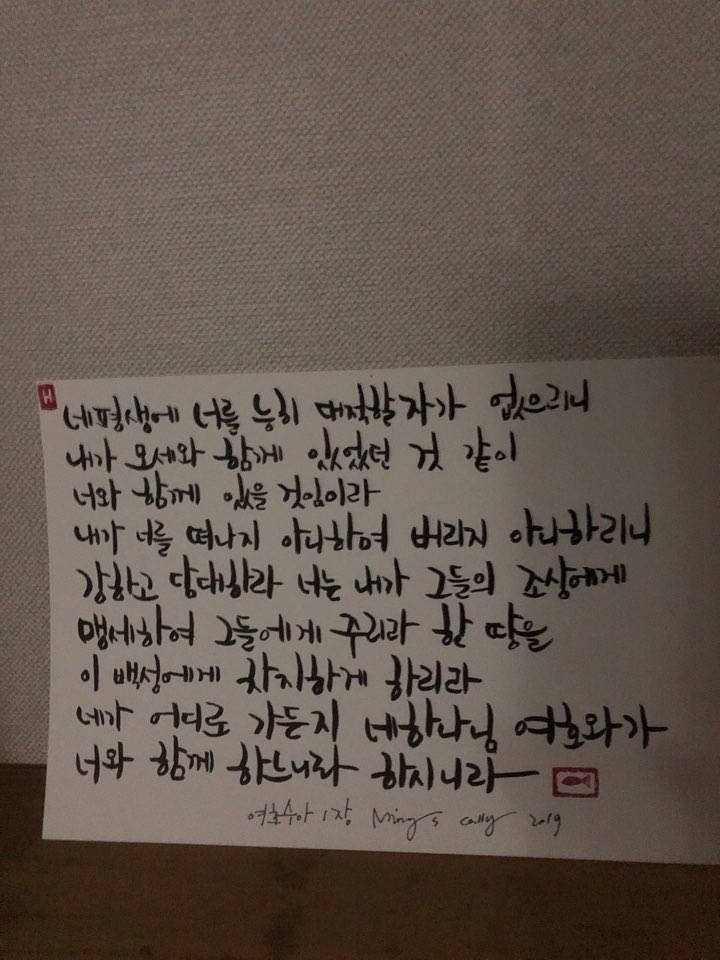 H
네평생에 너를 능히 대적할 자가 없으리니
내가 모세와 함께 있었던 것 같이
너와 함께 있을 것임이라
내가 너를 떠나지 아니하며 버리지 아니하리니
강하고 담대하라 너는 내가 그들의 조상에게
맹세하여 그들에게 주리라 한 땅을
이 백성에게 차지하게 하리라
네가 어디로 가든지 네하나님 여호와가
너와 함께 하느니라 하시니라
여호수아 1장 Ming's cally 2019